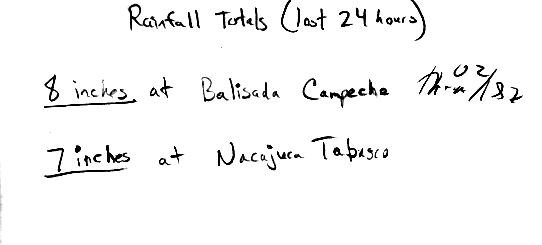 Rainfall Totals (last 24 hours)
8 inches at Balisada Campeche thru 02/182
7 inches at Nacajuca Tabasco